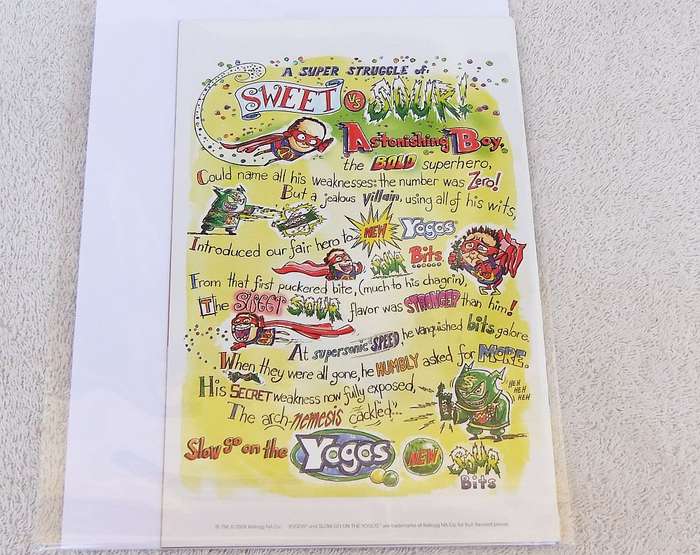 A SUPER STRUGGLE of:
SWEET vs SOUR!
Astonishing Boy,
the BOLD superhero,
Could name all his weaknesses: the number was Zero!
But a jealous villain, using all of his wits,
Introduced our fair hero to NEW Yogos
SOUR Bits.
From that first puckered bite, (much to his chagrin),
The SWEET SOUR flavor was STRONGER than him!
At supersonic SPEED he vanquished bits galore.
When they were all gone, he HUMBLY asked for MORE.
His SECRET weakness now fully exposed,
HEH HEH HEH
The arch-nemesis cackled...
Slow go on the Yogos NEW SOUR Bits